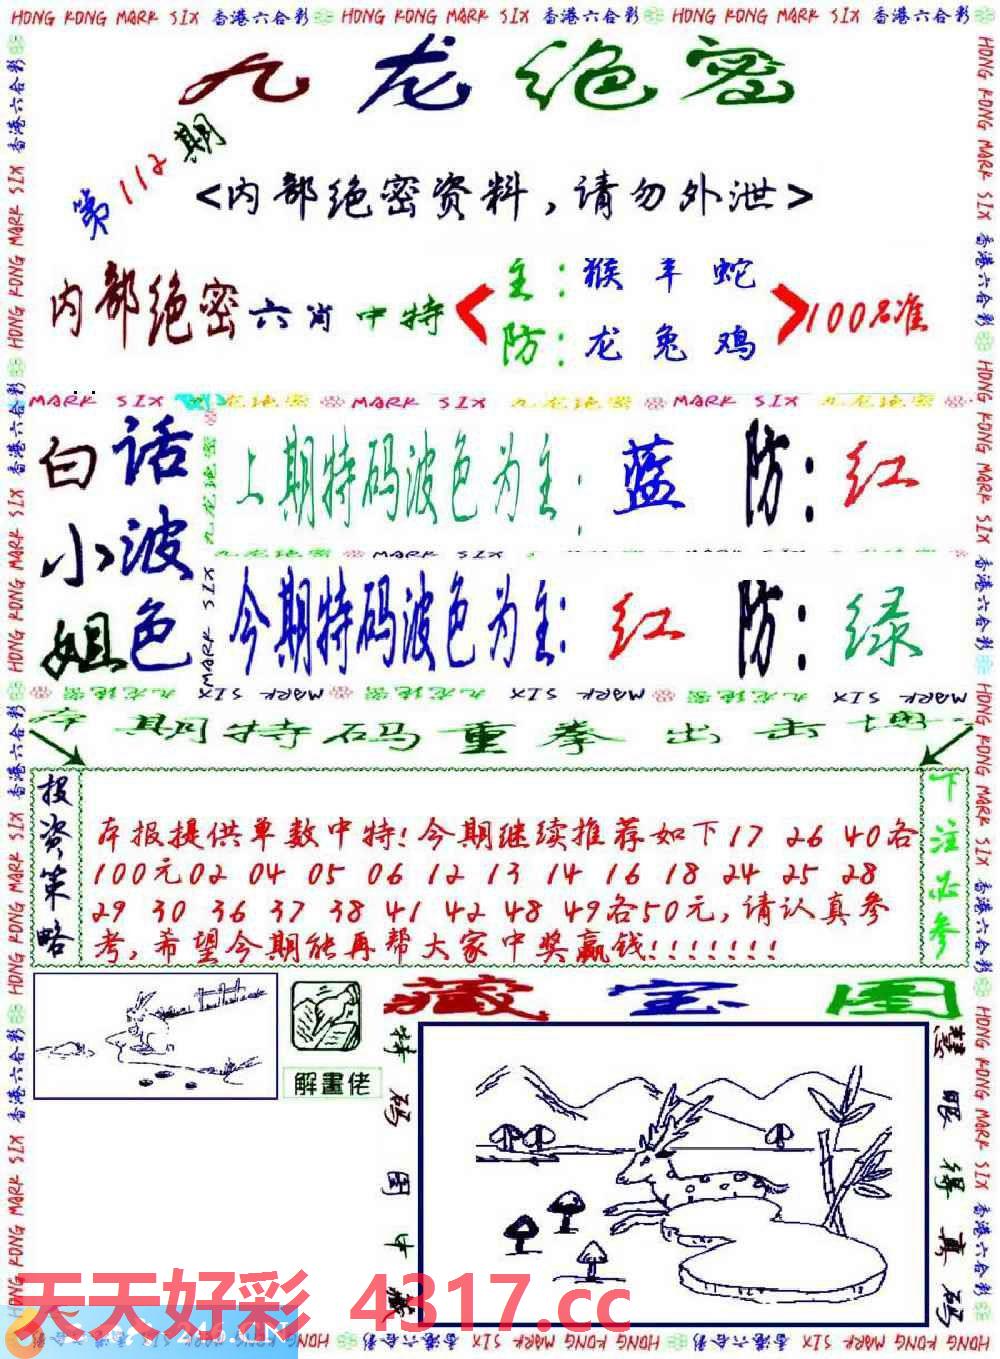 HONG KONG MARK SIX 香港六合彩 HONG KONG MARK SIX 香港六合彩 HONG KONG MARK SIX 香港六合彩
九龙绝密
第112期
<内部绝密资料,请勿外泄>
内部绝密六肖中特
主:猴 羊 蛇
防:龙 兔 鸡
100%准
MARK SIX 九龙绝密 MARK SIX 九龙绝密 MARK SIX 九龙绝密
白小姐
话波色
上期特码波色为主: 蓝 防:红
九龙绝密 MARK SIX 九龙绝密 MARK SIX
今期特码波色为主: 红 防:绿
本期特码重拳出击
投资策略
本报提供单数中特!今期继续推荐如下17 26 40各
100元02 04 05 06 12 13 14 16 18 24 25 28
29 30 36 37 38 41 42 48 49各50元,请认真参
考,希望今期能再帮大家中奖赢钱!!!!!!!
下注必参
解畫佬
藏宝图
特码图中藏
慧眼得真码
天天好彩 4317.cc
HONG KONG MARK SIX 香港六合彩 HONG KONG MARK SIX 香港六合彩